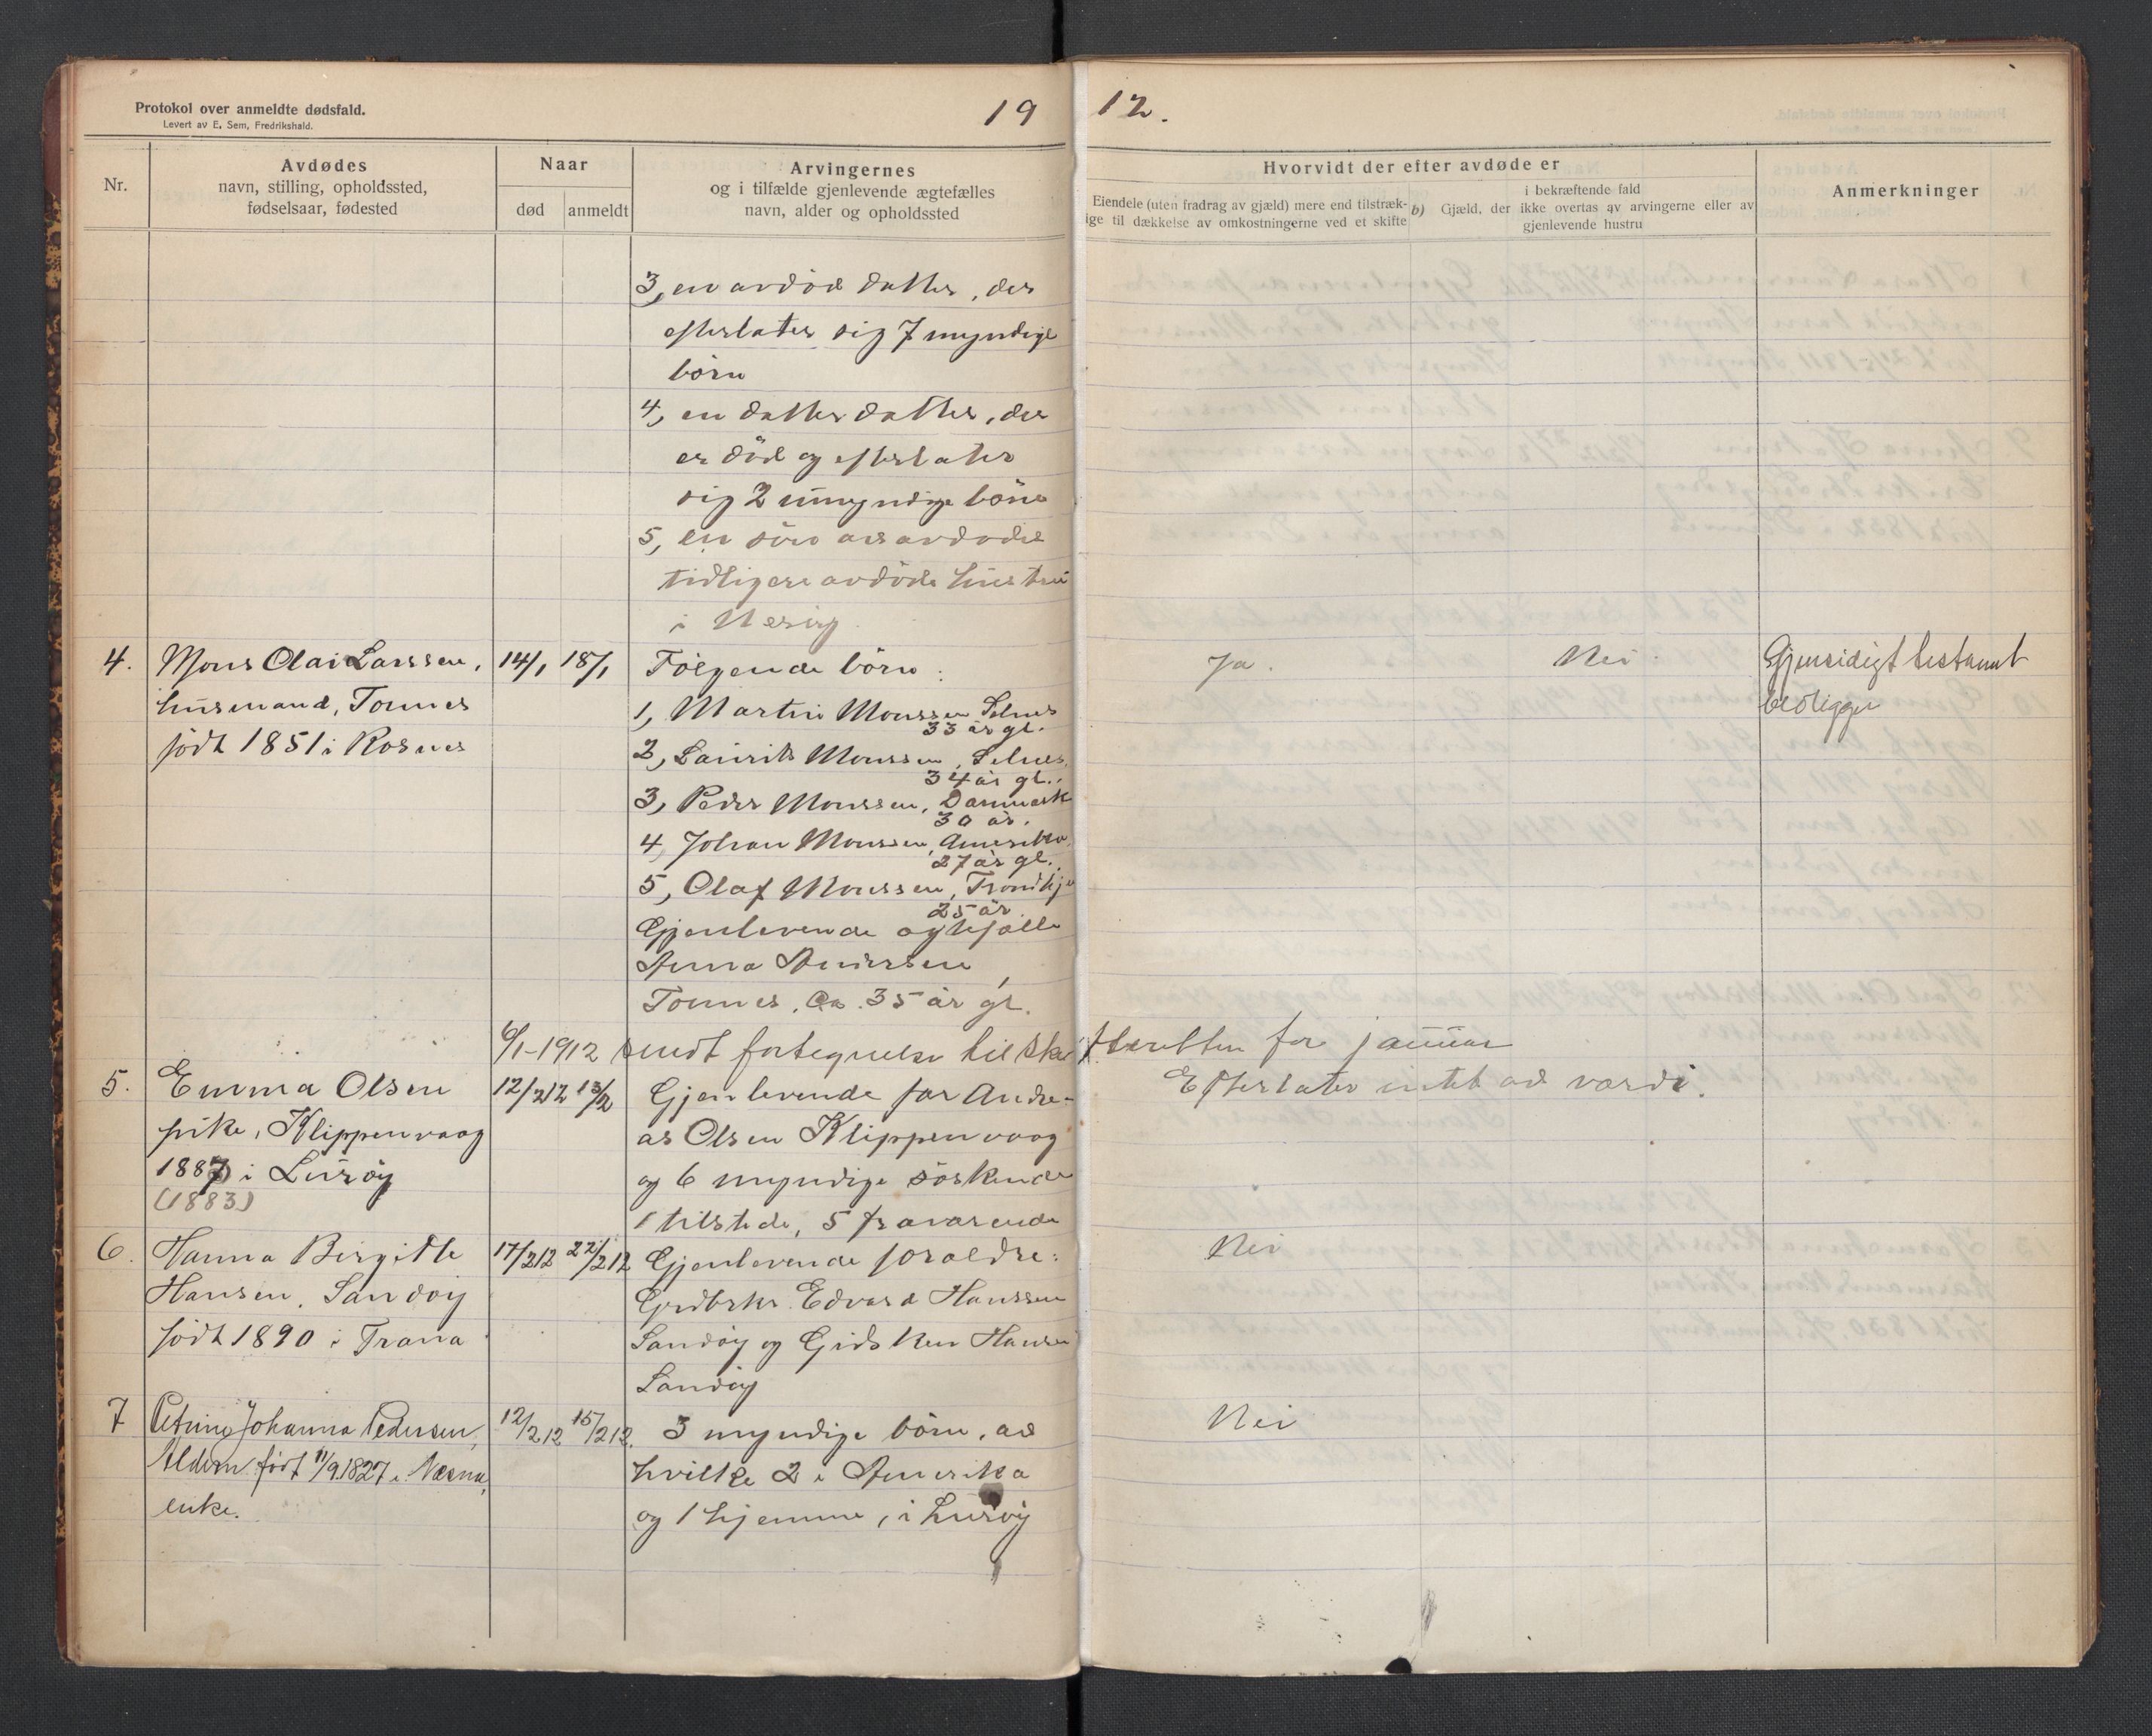 Protokol over anmeldte dødsfald.
Levert av E. Sem, Fredrikshald.
19 12.
Nr.
Avdødes
navn, stilling, opholdssted,
fødselsaar, fødested
Naar
død anmeldt
Arvingernes
og i tilfælde gjenlevende ægtefælles
navn, alder og opholdssted
Hvorvidt der efter avdøde er
Eiendele (uten fradrag av gjæld) mere end tilstræk-
ige til dækkelse av omkostningerne ved et skifte
b) Gjæld, der
i bekræftende fald
ikke overtas av arvingerne eller av
gjenlevende hustru
Anmerkninger
3, en avdød datter, der
efterlater sig 7 myndige
börn
4, en datterdatter, der
er död og efterlater
sig 2 umyndige börn
5, en sön av avdödes
tidligere avdöde hustru
i Nesöy
4. Mons Olai Larssen,
husmand, Tonnes
födt 1851 i Rosnes
14/1 18/1
Følgende börn:
1, Martin Monssen Selnes
33 år gl.
2, Laurits Monssen, Selnes.
34 år gl.
3, Peder Monssen, Danmark
30 år.
4, Johan Monssen, Amerika
27 år gl.
5, Olaf Monssen, Trondhj
25 år
Gjenlevende ægtefælle
Anna Andersen
Tonnes, Ca. 35 år gl.
Ja. Nei
Gjensidigt testament
bedligger
6/1-1912 sendt fortegnelse til skifteretten for januar
5. Emma Olsen
pike, Klippenvaag
1887 i Luröy
(1883)
12/2 12 13/2
Gjenlevende far Andre-
as Olsen Klippenvaag
og 6 myndige söskende
1 tilstede, 5 fraværende
Efterlater intet av værdi.
6. Hanna Birgitte
Hansen, Sandöy
födt 1890 i Træna
17/2 12 22/2 12
Gjenlevende forældre:
Grdbrkr. Edvard Hanssen
Sandöy og Gidsken Hansen
Sandöy
Nei
7 Petrine Johanna Pedersen,
Aldern født 11/9 1827 i Næsna,
enke.
12/2 12 15/2 12.
3 myndige börn, av
hvilke 2 i Amerika
og 1 hjemme, i Luröy
Nei